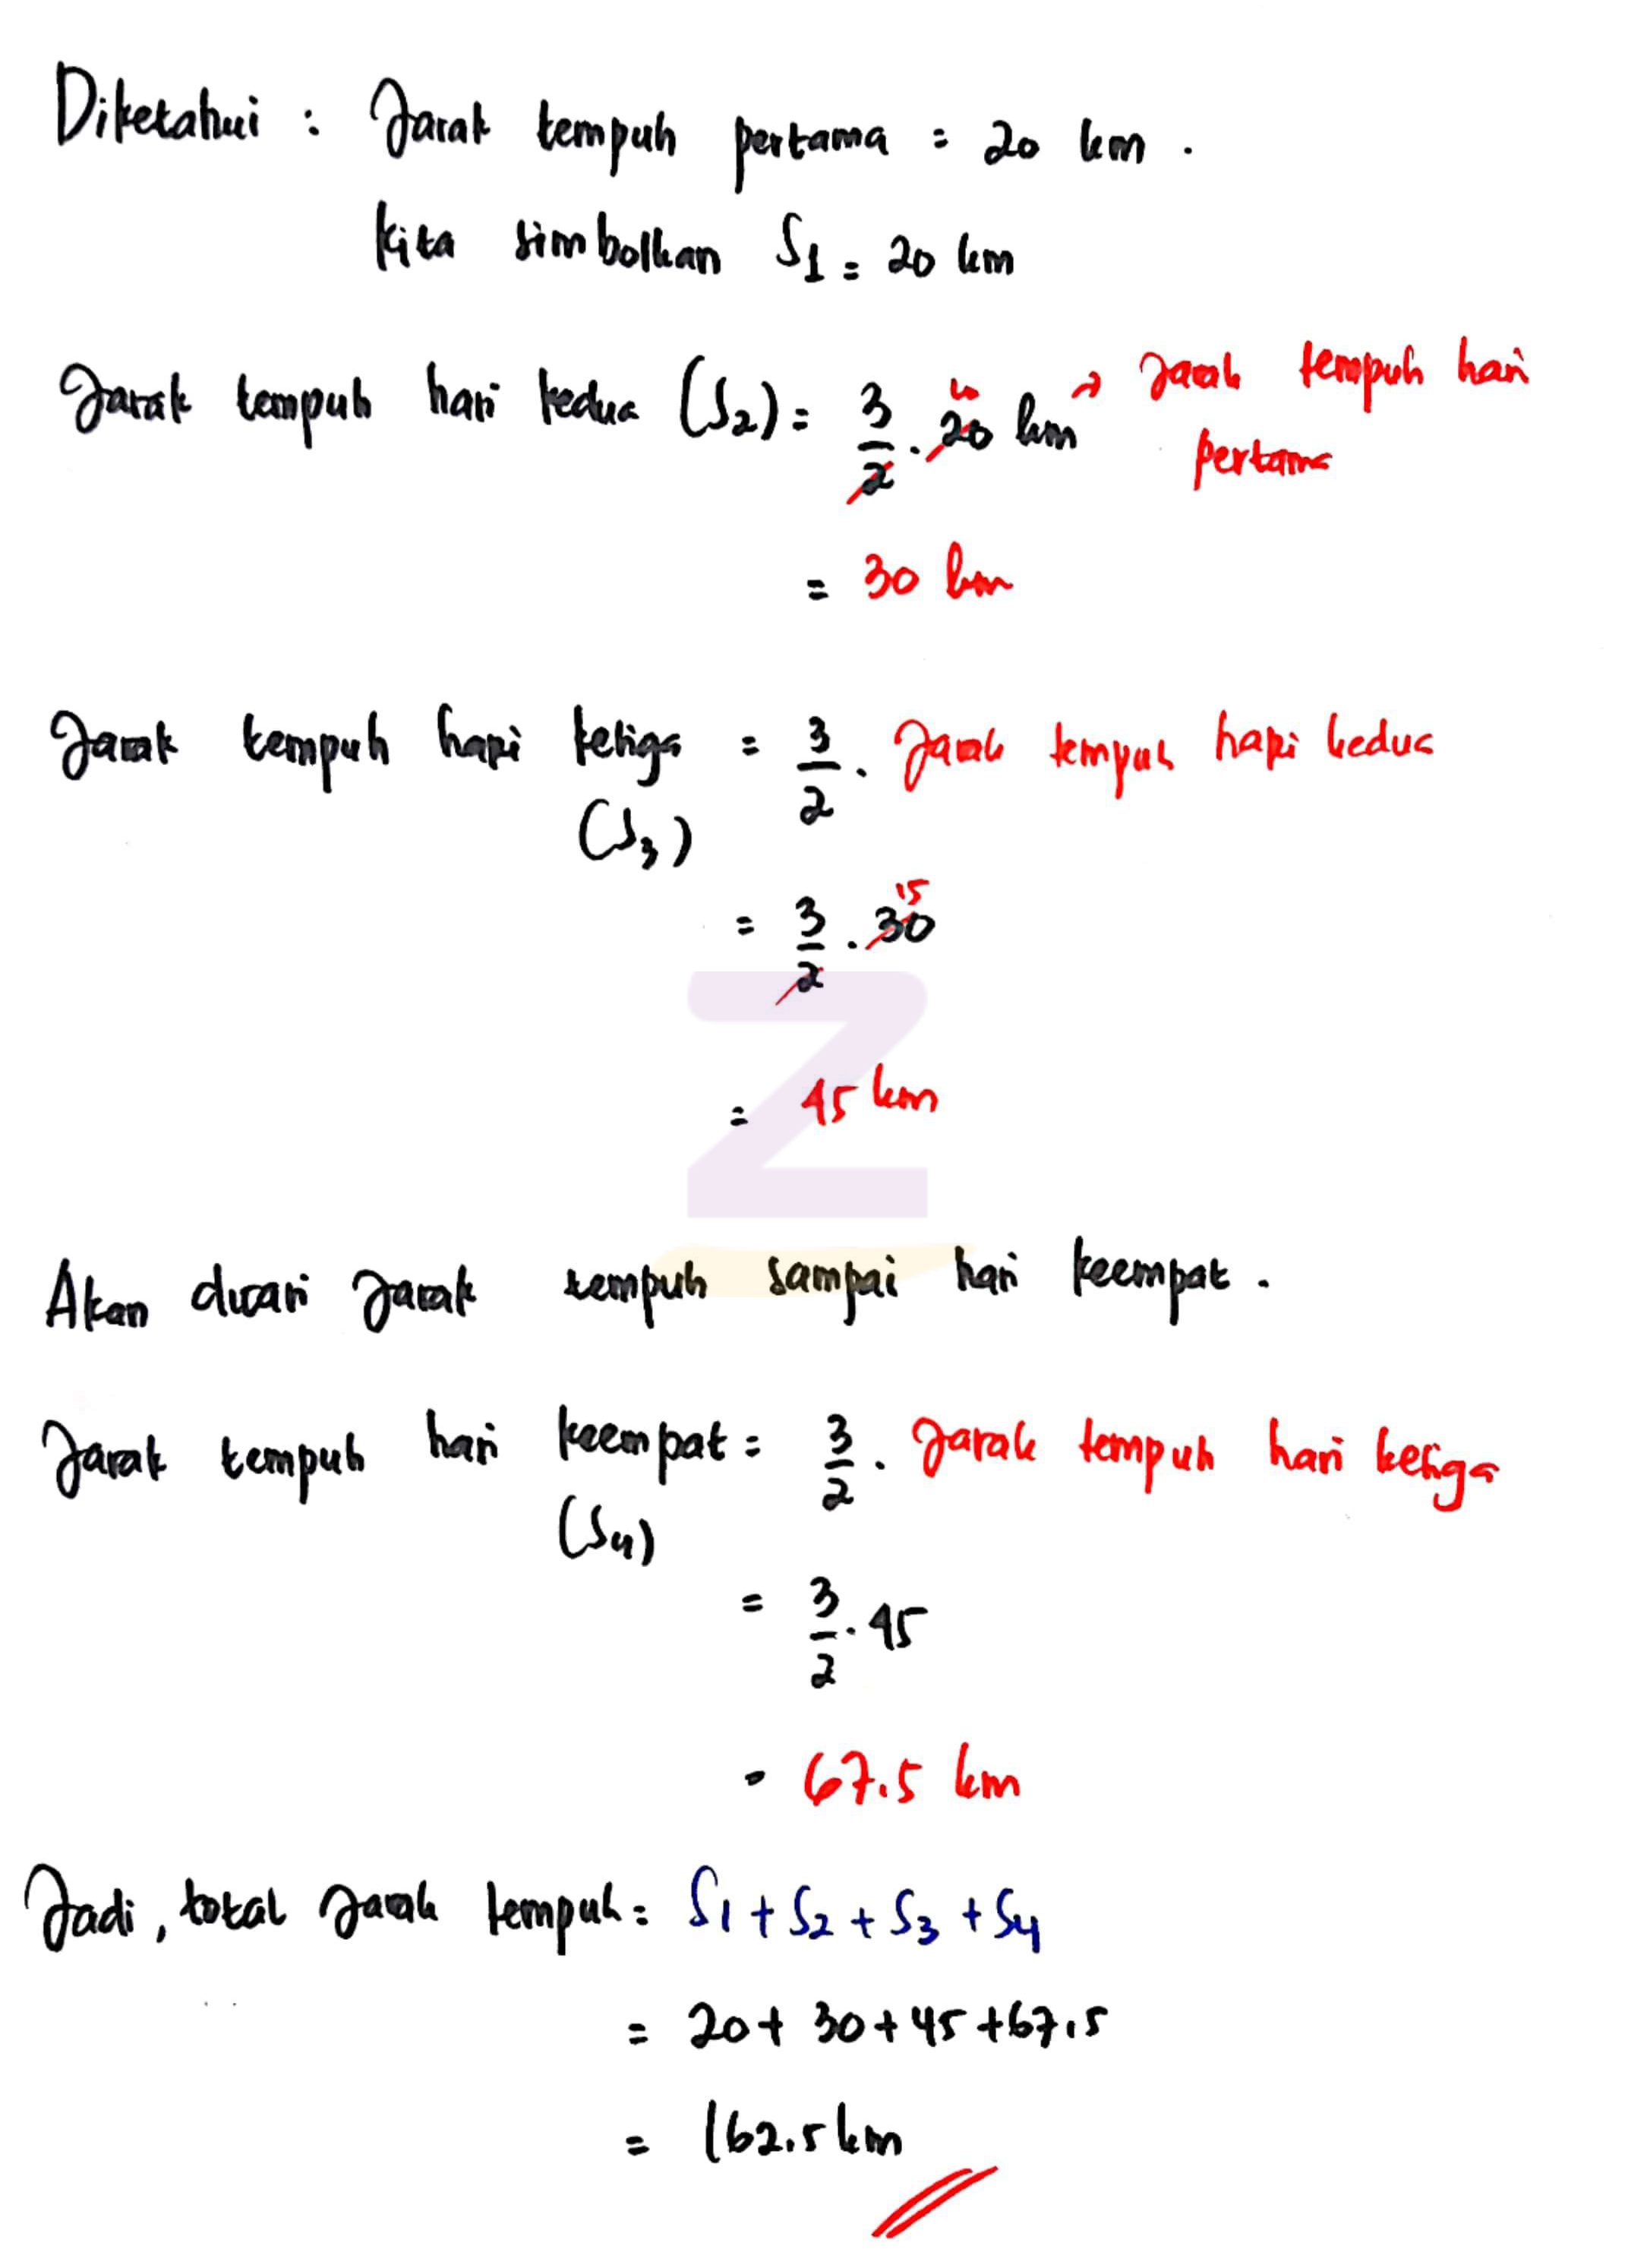 Diketahui : Jarak tempuh pertama = 20 km .
kita simbolkan S1 = 20 km
Jarak tempuh hari kedua (S2) = 3/2 . 20 km → Jarak tempuh hari
10
pertama
= 30 km
Jarak tempuh hari ketiga = 3/2 . Jarak tempuh hari kedua
(S3)
= 3/2 . 30
15
= 45 km
Z
Akan dicari Jarak tempuh sampai hari keempat .
Jarak tempuh hari keempat = 3/2 . Jarak tempuh hari ketiga
(S4)
= 3/2 . 45
= 67.5 km
Jadi, total Jarak tempuh = S1 + S2 + S3 + S4
= 20 + 30 + 45 + 67.5
= 162.5 km